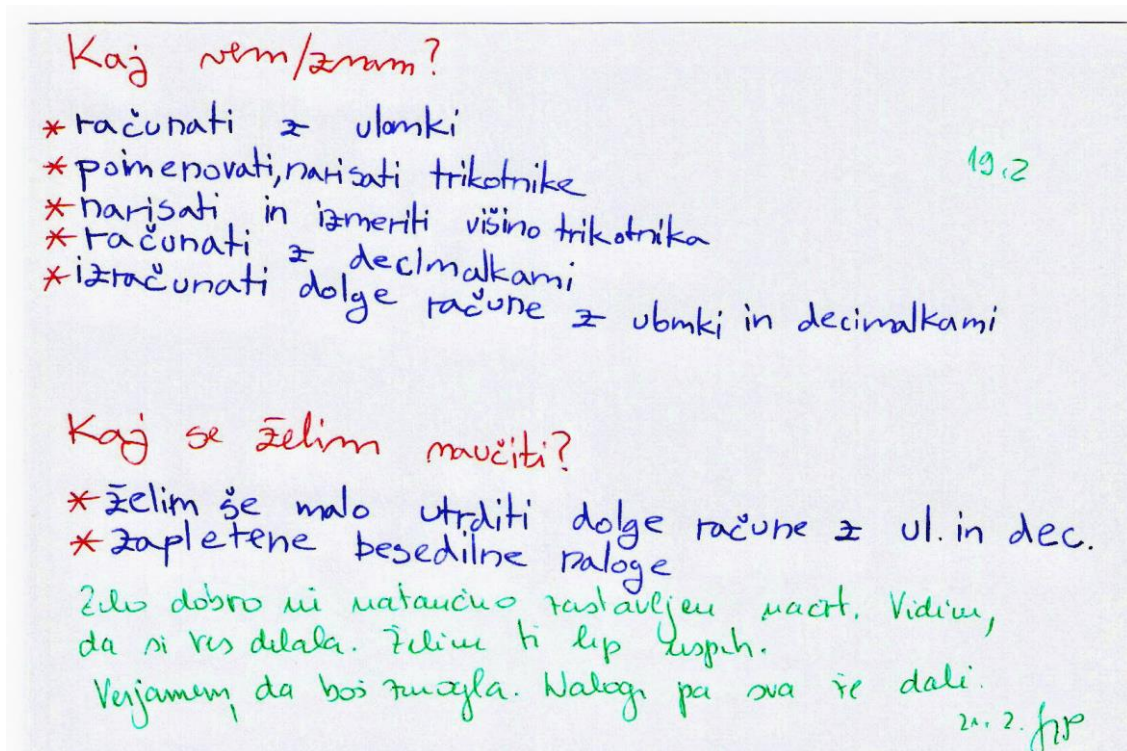 Kaj vem/znam?
* računati z ulomki
19.2
* poimenovati, narisati trikotnike
* narisati in izmeriti višino trikotnika
* računati z decimalkami
* izračunati dolge račune z ulomki in decimalkami
Kaj se želim naučiti?
* želim še malo utrditi dolge račune z ul. in dec.
* zapletene besedilne naloge
Zelo dobro in natančno zastavljen načrt. Vidim,
da si res delala. Želim ti lep uspeh.
Verjamem, da boš zmogla. Nalogi pa sva že dali.
21. 2.